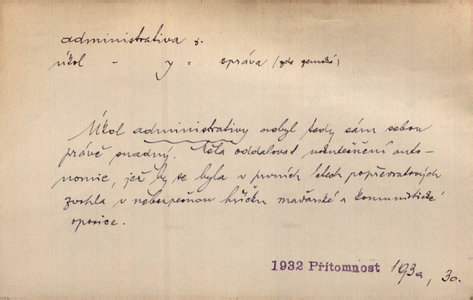 administrativa ž.
úkol - y - správa (zde genitiv)
Úkol administrativy nebyl tedy sám sebou
právě snadný. Měla oddalovat uskutečnění auto-
nomie, jež by se byla v prvních letech popřevratových
zvrhla v nebezpečnou hříčku maďarské a komunistické
oposice.
1932 Přítomnost 193a, 30.